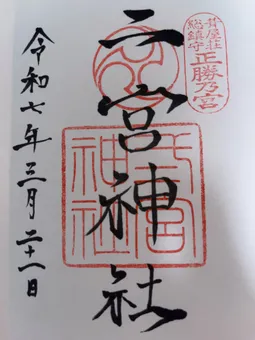 葺屋荘
総鎮守
正勝乃宮
二宮神社
宮
神社
令和七年三月二十一日